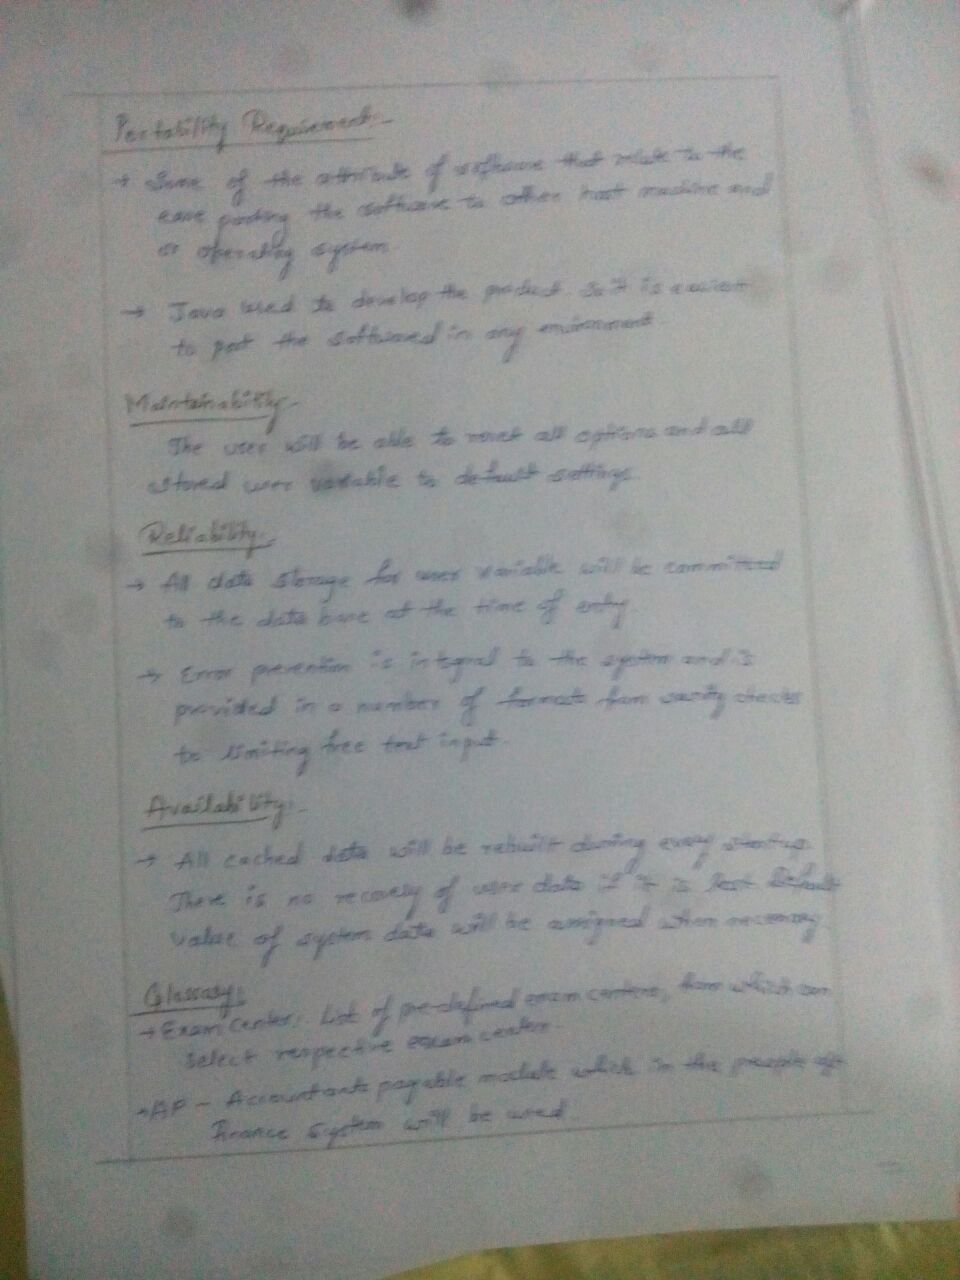 Portability Requirement:-
→ Some of the attribute of software that relate to the
ease porting the software to other host machine and
or operating system
→ Java used to develop the product. So it is easiest
to port the software in any environment.
Maintainability:-
The user will be able to reset all options and all
stored user variable to default settings
Reliability:-
→ All data storage for user variable will be committed
to the data base at the time of entry
→ Error prevention is integral to the system and is
provided in a number of formats from sanity checks
to limiting free text input.
Availability:-
→ All cached data will be rebuilt during every startup.
There is no recovery of user data if it is lost. Default
value of system data will be assigned when necessary.
Glossary:
→ Exam Center: List of pre-defined exam centers, from which can
select respective exam center.
→ AP - Accountants payable module which in the people
finance system will be used.